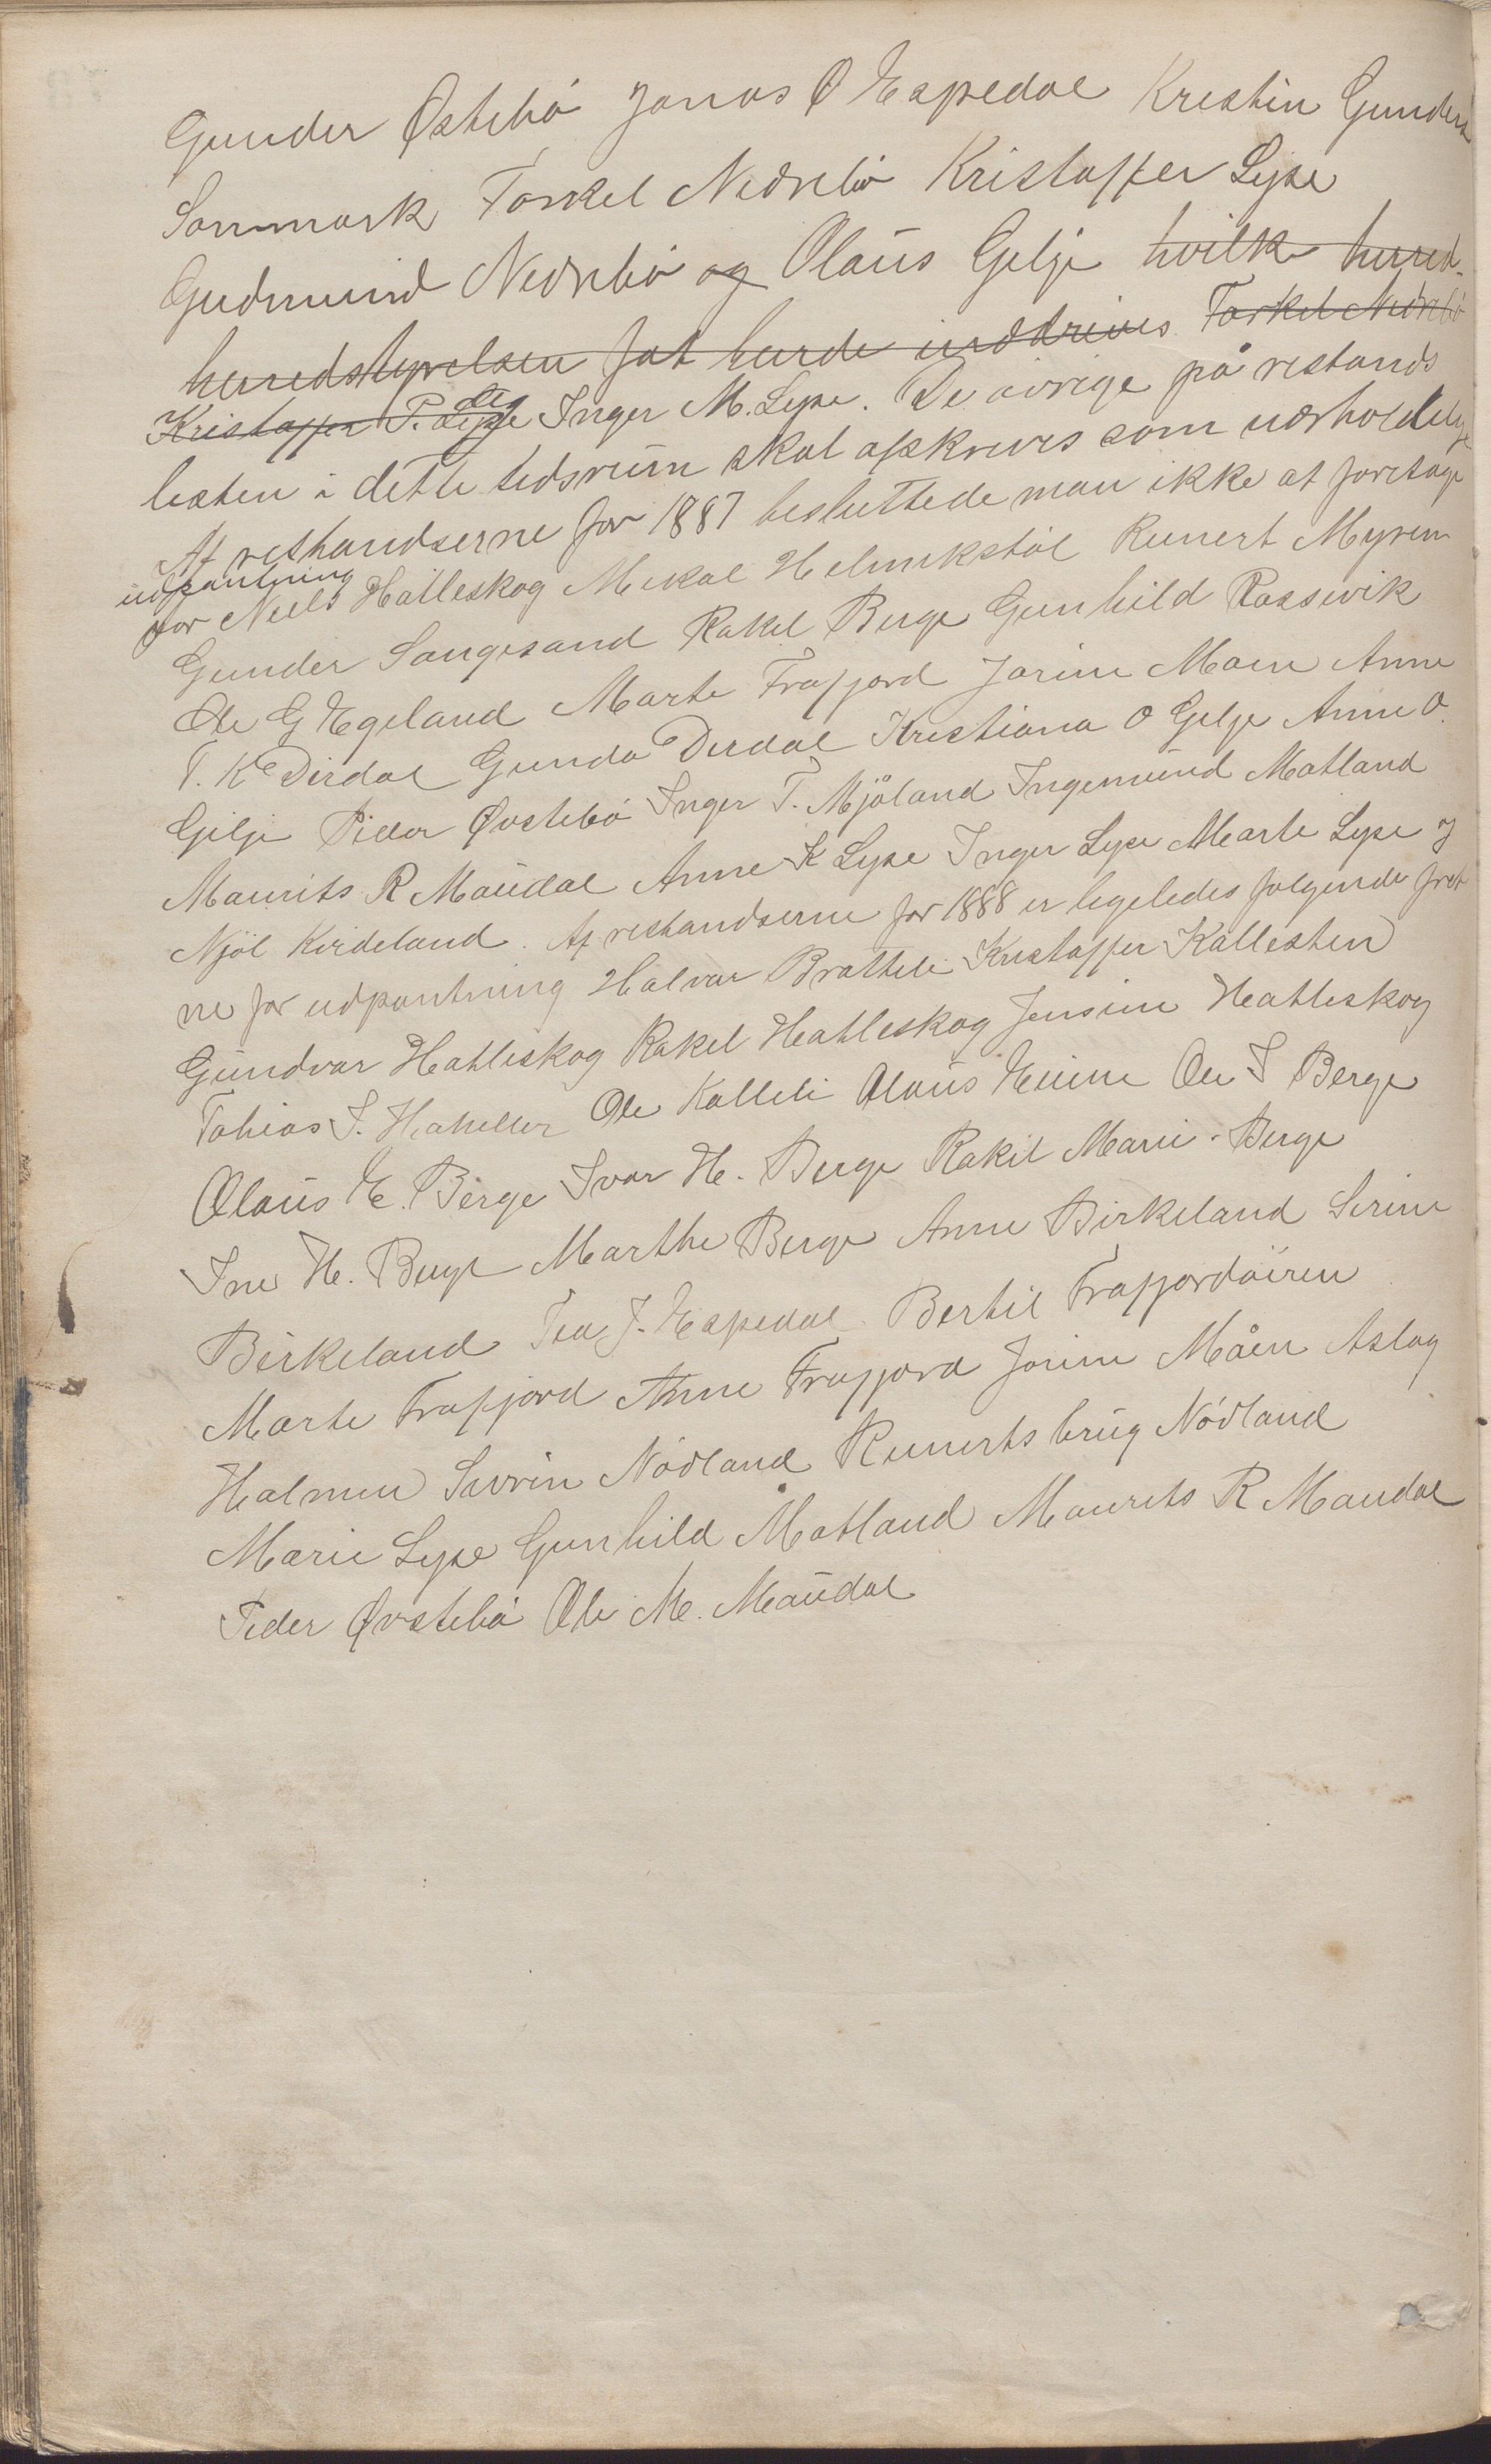 Gunder Østebö Jonas O Espedal Kristin Gunders
Sanmork Torkel Nedrebö Kristoffer Lyse
Gudmund Nedrebö og Olaus Gilje hvilke herred-
herredstyrelsen fat burde inddrives Torkel Nedrebö
Kristoffer P. Lyse og Inger M. Lyse. De øvrige på restands
listen i dette tidsrum skal afskrives som uerholdelige
Af restandserne for 1887 besluttede man ikke at foretage
udpantning
for Neils Hatleskog Mikal Helmikstöl Runert Myren
Gunder Songesand Rakel Berge Gunhild Rossevik
Ole G Egeland Marte Frafjord Jorine Moen Anne
T. K Dirdal Gunda Dirdal Kristiana O Gilje Anne O.
Gilje Peder Øvstebö Inger T. Mjöland Ingemund Matland
Maurits R Maudal Anne K Lyse Inger Lyse Marte Lyse og
Njöl Kirdeland. Af restandserne for 1888 er ligeledes folgende fret
ne for udpantning Halvar Bratteli Kristoffer Kallesten
Gundvar Hatleskog Rakel Hatleskog Jensine Hatleskog
Tobias S. Haheller Ole Kalleli Olaus Eiene Ole S Berge
Olaus E. Berge Ivar H. Berge Rakel Marie Berge
Ine H. Berge Marthe Berge Anne Birkeland Serine
Birkeland Tea J. Espedal Bertil Frafjordøiren
Marte Frafjord Anne Frafjord Jorine Måen Aslag
Holmen Sivrin Nödland Runertsbrug Nödland
Marie Lyse Gunhild Matland Maurits R Maudal
Peder Øvstebö Ole M. Maudal